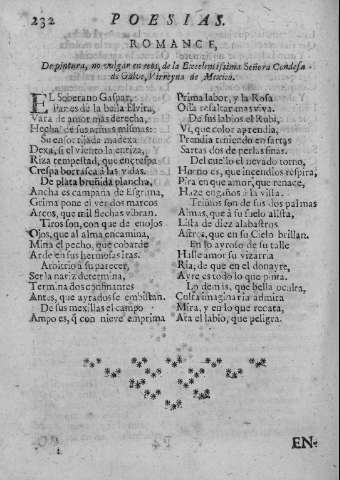 232 POESIAS.
ROMANCE,
De pintura, no vulgar en ecos, de la Excelentissima Señora Condesa
de Galve, Virreyna de Mexico.
EL Soberano Gaspar,
Pares de la bella Elvira,
Vara de amor mas derecha,
Hecha de sus armas mismas:
Su ensortijada madexa
Dexa, si el viento la enriza,
Riza tempestad, que encrespa
Crespa borrasca à las vidas.
De plata bruñida plancha,
Ancha es campaña de Esgrima,
Grima pone el ver dos marcos
Arcos, que mil flechas vibran.
Tiros son, con que de enojos
Ojos, que al alma encamina,
Mina el pecho, que cobarde
Arde en sus hermosas iras.
Arbitrio à su parecer,
Ser la nariz determina,
Termina dos confinantes
Antes, que ayrados se embistan.
De sus mexillas el campo
Ampo es, q̃ con nieve emprima
Prima labor, y la Rosa
Osa resaltar mas viva.
De sus labios el Rubì,
Vì, que color aprendia,
Prendia teniendo ensartas
Sartas dos de perlas finas.
Del cuello el nevado torno,
Horno es, que incendios respira,
Pira en que amor, que renace,
Haze engaños à la vista.
Triunfos son de sus dos palmas
Almas, que à su sueldo alista,
Lista de diez alabastros
Astros, que en su Cielo brillan.
En lo ayroso de su talle
Halle amor su vizarria
Ria; de que en el donayre,
Ayre es todo lo que pinta.
Lo demàs, que bella oculta,
Culta imaginaria admira
Mira, y en lo que recata,
Ata el labio, que peligra.
EN-